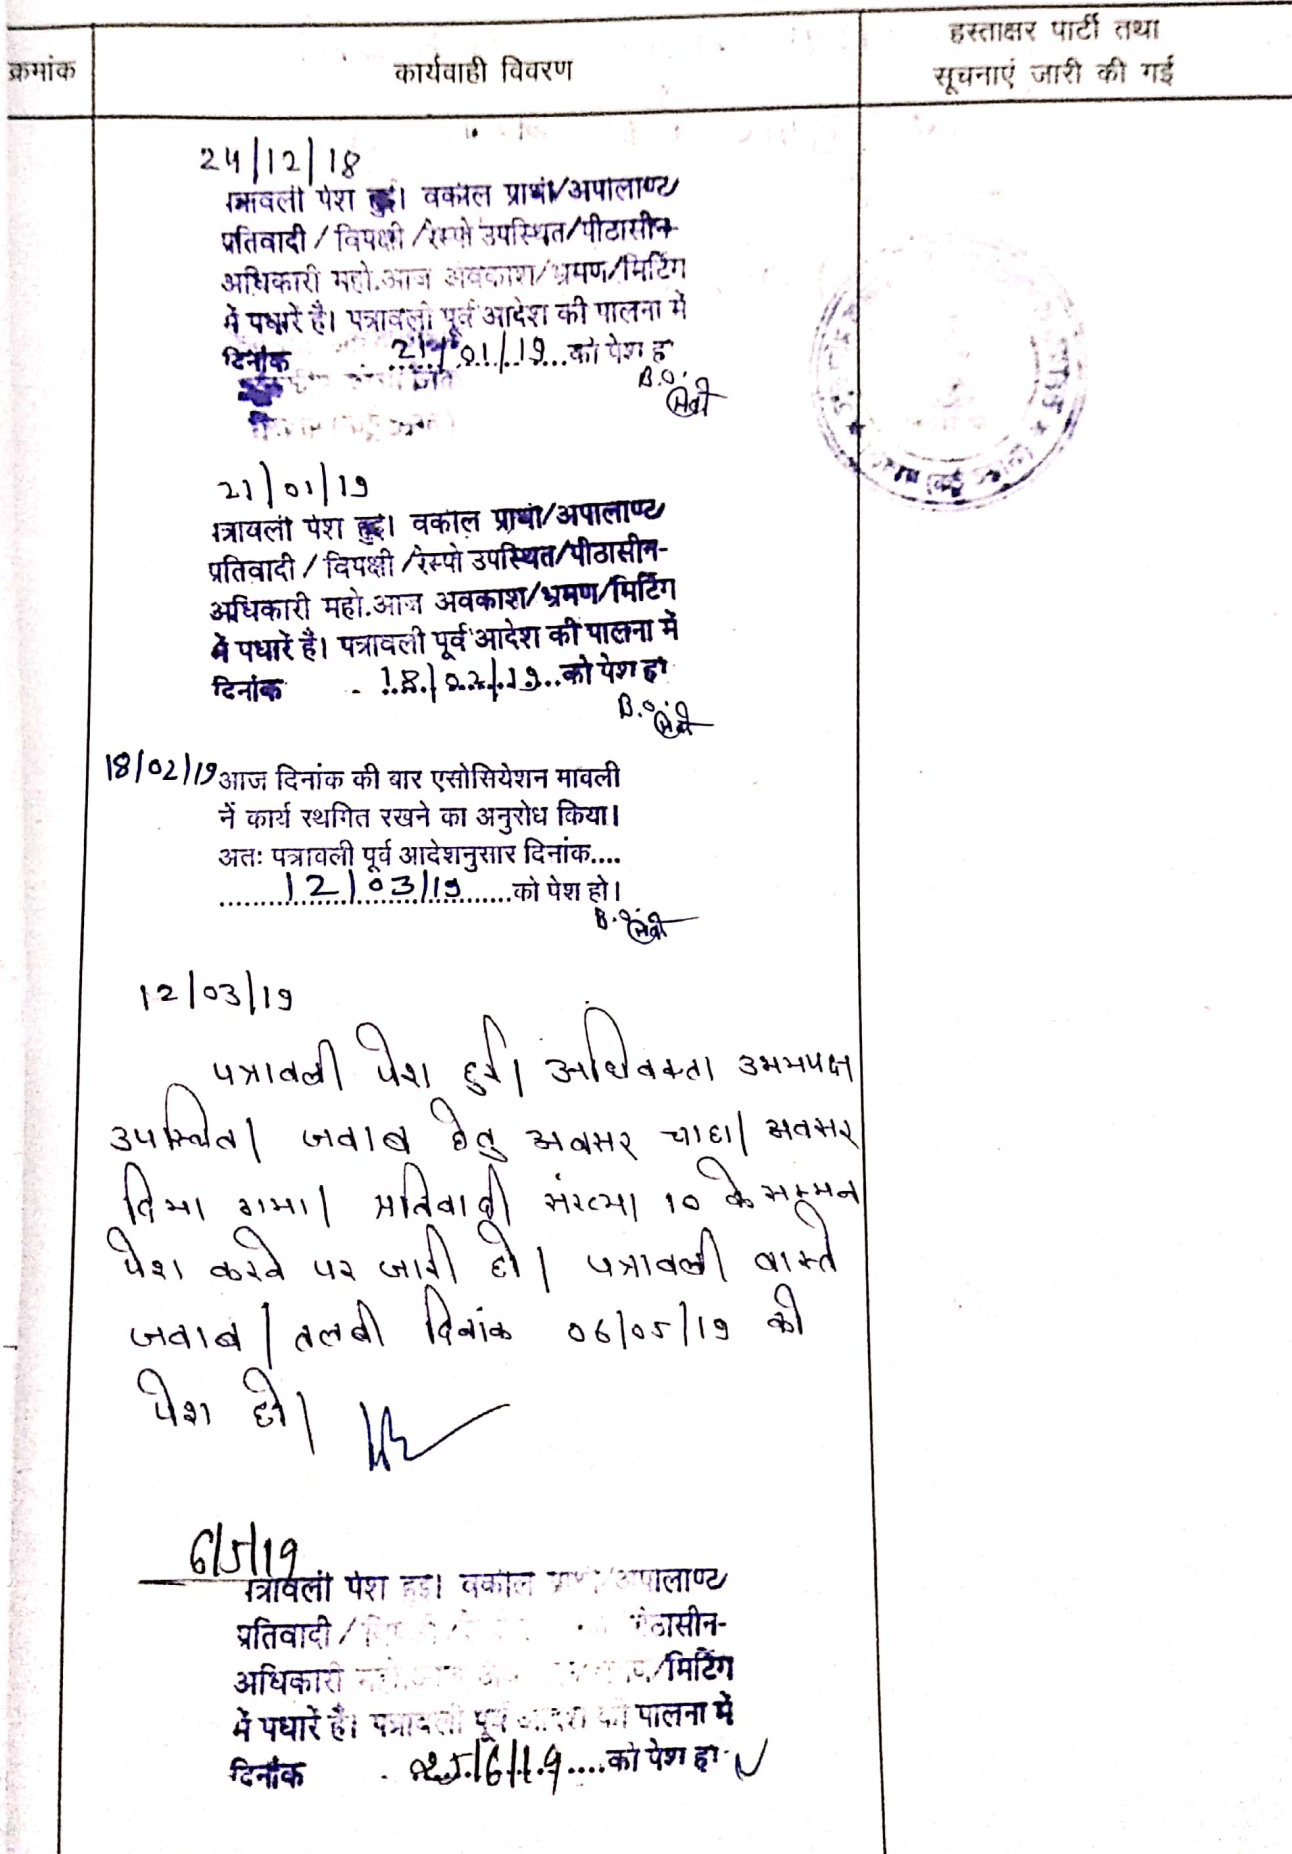 क्रमांक
कार्यवाही विवरण
हस्ताक्षर पार्टी तथा
सूचनाएं जारी की गई
24/12/18
पत्रावली पेश हुई। वकील प्रार्थी/अपीलाण्ट
प्रतिवादी / विपक्षी /रेस्पो उपस्थित/पीठासीन-
अधिकारी महो.आज अवकाश/भ्रमण/मिटिंग
में पधारें है। पत्रावली पूर्व आदेश की पालना में
दिनांक 21/01/19 को पेश हो
B.O.
21/01/19
पत्रावली पेश हुई। वकील प्रार्थी/अपीलाण्ट
प्रतिवादी / विपक्षी /रेस्पो उपस्थित/पीठासीन-
अधिकारी महो.आज अवकाश/भ्रमण/मिटिंग
में पधारें है। पत्रावली पूर्व आदेश की पालना में
दिनांक 18/02/19 को पेश हो
B.O.
18/02/19 आज दिनांक की बार एसोसियेशन मावली
नें कार्य स्थगित रखने का अनुरोध किया।
अतः पत्रावली पूर्व आदेशनुसार दिनांक....
12/03/19 को पेश हो।
B.O.
12/03/19
पत्रावली पेश हुई। अधिवक्ता उभयपक्ष
उपस्थित। जवाब हेतु अवसर चाहा। अवसर
दिया गया। प्रतिवादी संख्या 10 के सम्मन
पेश करने पर जारी हो। पत्रावली वास्ते
जवाब / तलबी दिनांक 06/05/19 को
पेश हो।
6/5/19
पत्रावली पेश हुई। वकील अपीलाण्ट
प्रतिवादी / पीठासीन-
अधिकारी /मिटिंग
में पधारें है। पत्रावली पूर्व आदेश की पालना में
दिनांक 25/6/19 को पेश हो